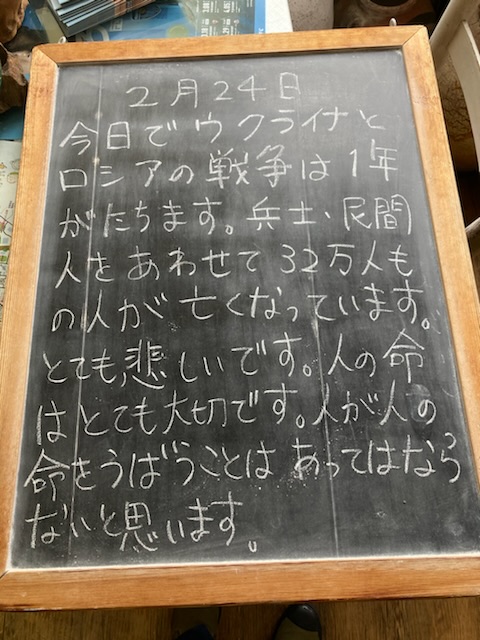 2月24日
今日でウクライナと
ロシアの戦争は1年
がたちます。兵士、民間
人をあわせて32万人も
の人が亡くなっています。
とても悲しいです。人の命
はとても大切です。人が人の
命をうばうことはあってはなら
ないと思います。